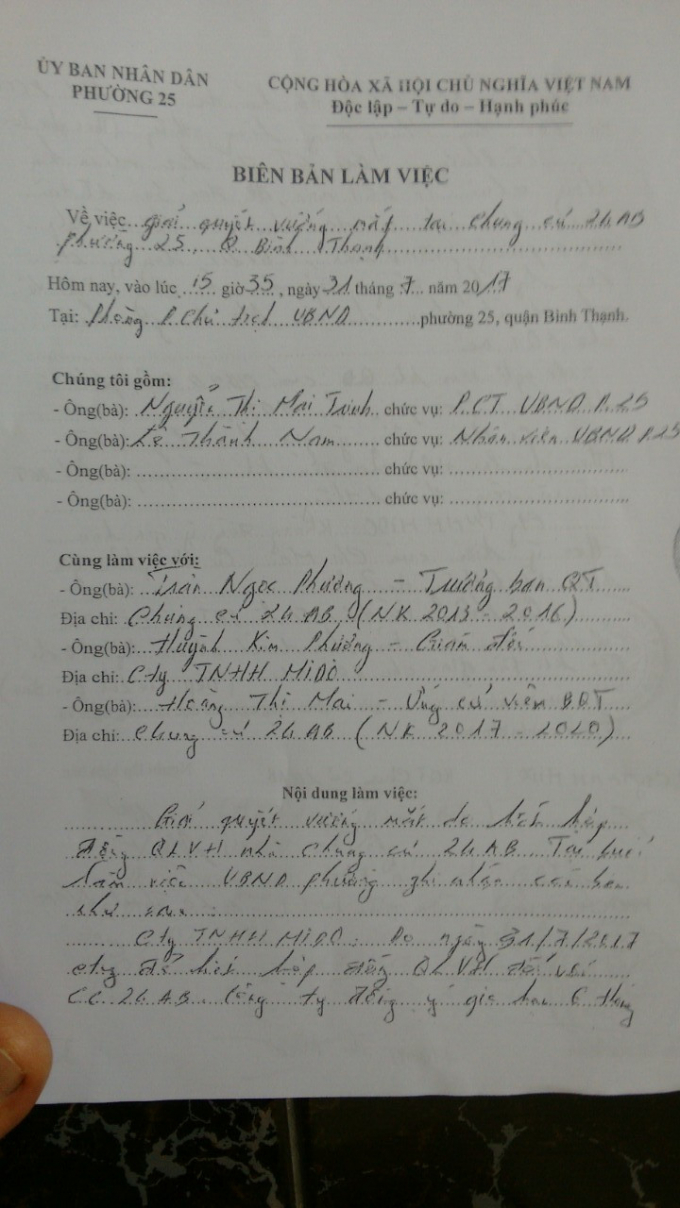 ỦY BAN NHÂN DÂN
PHƯỜNG 25
CỘNG HÒA XÃ HỘI CHỦ NGHĨA VIỆT NAM
Độc lập – Tự do – Hạnh phúc
BIÊN BẢN LÀM VIỆC
Về việc giải quyết vướng mắc tại chung cư 24AB
Phường 25, Q Bình Thạnh
Hôm nay, vào lúc 15 giờ 35, ngày 31 tháng 7 năm 2017
Tại: Phòng P.Chủ tịch UBND phường 25, quận Bình Thạnh.
Chúng tôi gồm:
- Ông(bà): Nguyễn Thị Mai Trinh chức vụ: P.CT UBND P.25
- Ông(bà): Lê Thành Nam chức vụ: Nhân viên UBND P.25
- Ông(bà): chức vụ:
- Ông(bà): chức vụ:
Cùng làm việc với:
- Ông(bà): Trần Ngọc Phương – Trưởng ban QT
Địa chỉ: Chung cư 24AB (NK 2013 - 2016)
- Ông(bà): Huỳnh Kim Phượng – Giám đốc
Địa chỉ: Cty TNHH MIDO
- Ông(bà): Hoàng Thị Mai – Ứng cử viên BQT
Địa chỉ: Chung cư 24AB (NK 2017 - 2020)
Nội dung làm việc:
Giải quyết vướng mắt do hết hợp
đồng QLVH nhà chung cư 24AB Tại buổi
làm việc UBND phường ghi nhận các bên
như sau:
Cty TNHH MIDO: Do ngày 31/7/2017
cty đã hết hợp đồng QLVH đối với
CC 24AB. Công ty đồng ý gia hạn 6 tháng